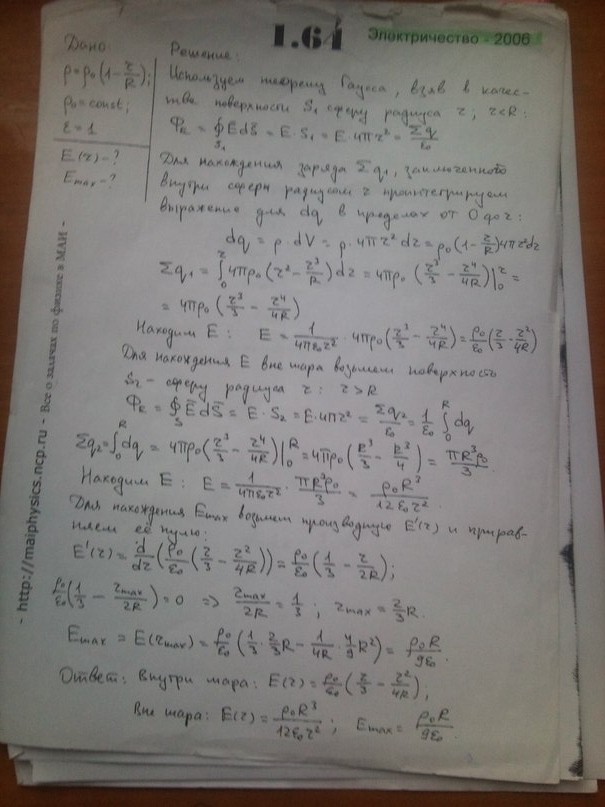 1.64
Электричество - 2006
Дано:
ρ=ρ₀(1-r/R);
ρ₀=const;
ε=1
E(r)-?
Emax-?
Решение:
Используем теорему Гаусса, взяв в качес-
тве поверхности S₁ сферу радиуса r; r<R:
Φ_E = ∮_S₁ E⃗dS⃗ = E·S₁ = E·4πr² = Σq/ε₀
Для нахождения заряда Σq₁, заключенного
внутри сферы радиусом r проинтегрируем
выражение для dq в пределах от 0 до r:
dq = ρ·dV = ρ·4πr²dr = ρ₀(1-r/R)4πr²dr
Σq₁ = ∫₀^r 4πρ₀(r²-r³/R)dr = 4πρ₀(r³/3 - r⁴/4R)|₀^r =
= 4πρ₀(r³/3 - r⁴/4R)
Находим E: E = 1/4πε₀r² · 4πρ₀(r³/3 - r⁴/4R) = ρ₀/ε₀(r/3 - r²/4R)
Для нахождения E вне шара возьмем поверхность
S₂ - сферу радиуса r: r>R
Φ_E = ∮_S E⃗dS⃗ = E·S₂ = E·4πr² = Σq₂/ε₀ = 1/ε₀ ∫₀^R dq
Σq₂ = ∫₀^R dq = 4πρ₀(r³/3 - r⁴/4R)|₀^R = 4πρ₀(R³/3 - R³/4) = πR³ρ₀/3
Находим E: E = 1/4πε₀r² · πR³ρ₀/3 = ρ₀R³/12ε₀r².
Для нахождения Emax возьмем производную E'(r) и прирав-
няем её нулю:
E'(r) = d/dr(ρ₀/ε₀(r/3 - r²/4R)) = ρ₀/ε₀(1/3 - r/2R);
ρ₀/ε₀(1/3 - rmax/2R) = 0 => rmax/2R = 1/3; rmax = 2/3R.
Emax = E(rmax) = ρ₀/ε₀(1/3·2/3R - 1/4R·4/9R²) = ρ₀R/9ε₀.
Ответ: внутри шара: E(r) = ρ₀/ε₀(r/3 - r²/4R);
Вне шара: E(r) = ρ₀R³/12ε₀r²; Emax = ρ₀R/9ε₀.
- http://maiphysics.ncp.ru - Все о задачах по физике в МАИ -